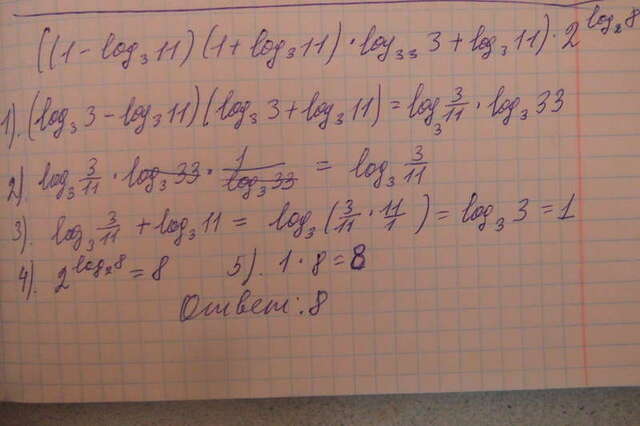 ((1 - log₃ 11)(1 + log₃ 11) · log₃₃ 3 + log₃ 11) · 2^(log₂ 8)
1). (log₃ 3 - log₃ 11)(log₃ 3 + log₃ 11) = log₃ 3/11 · log₃ 33
2). log₃ 3/11 · log₃ 33 · 1/log₃ 33 = log₃ 3/11
3). log₃ 3/11 + log₃ 11 = log₃ (3/11 · 11/1) = log₃ 3 = 1
4). 2^(log₂ 8) = 8 5). 1 · 8 = 8
Ответ: 8